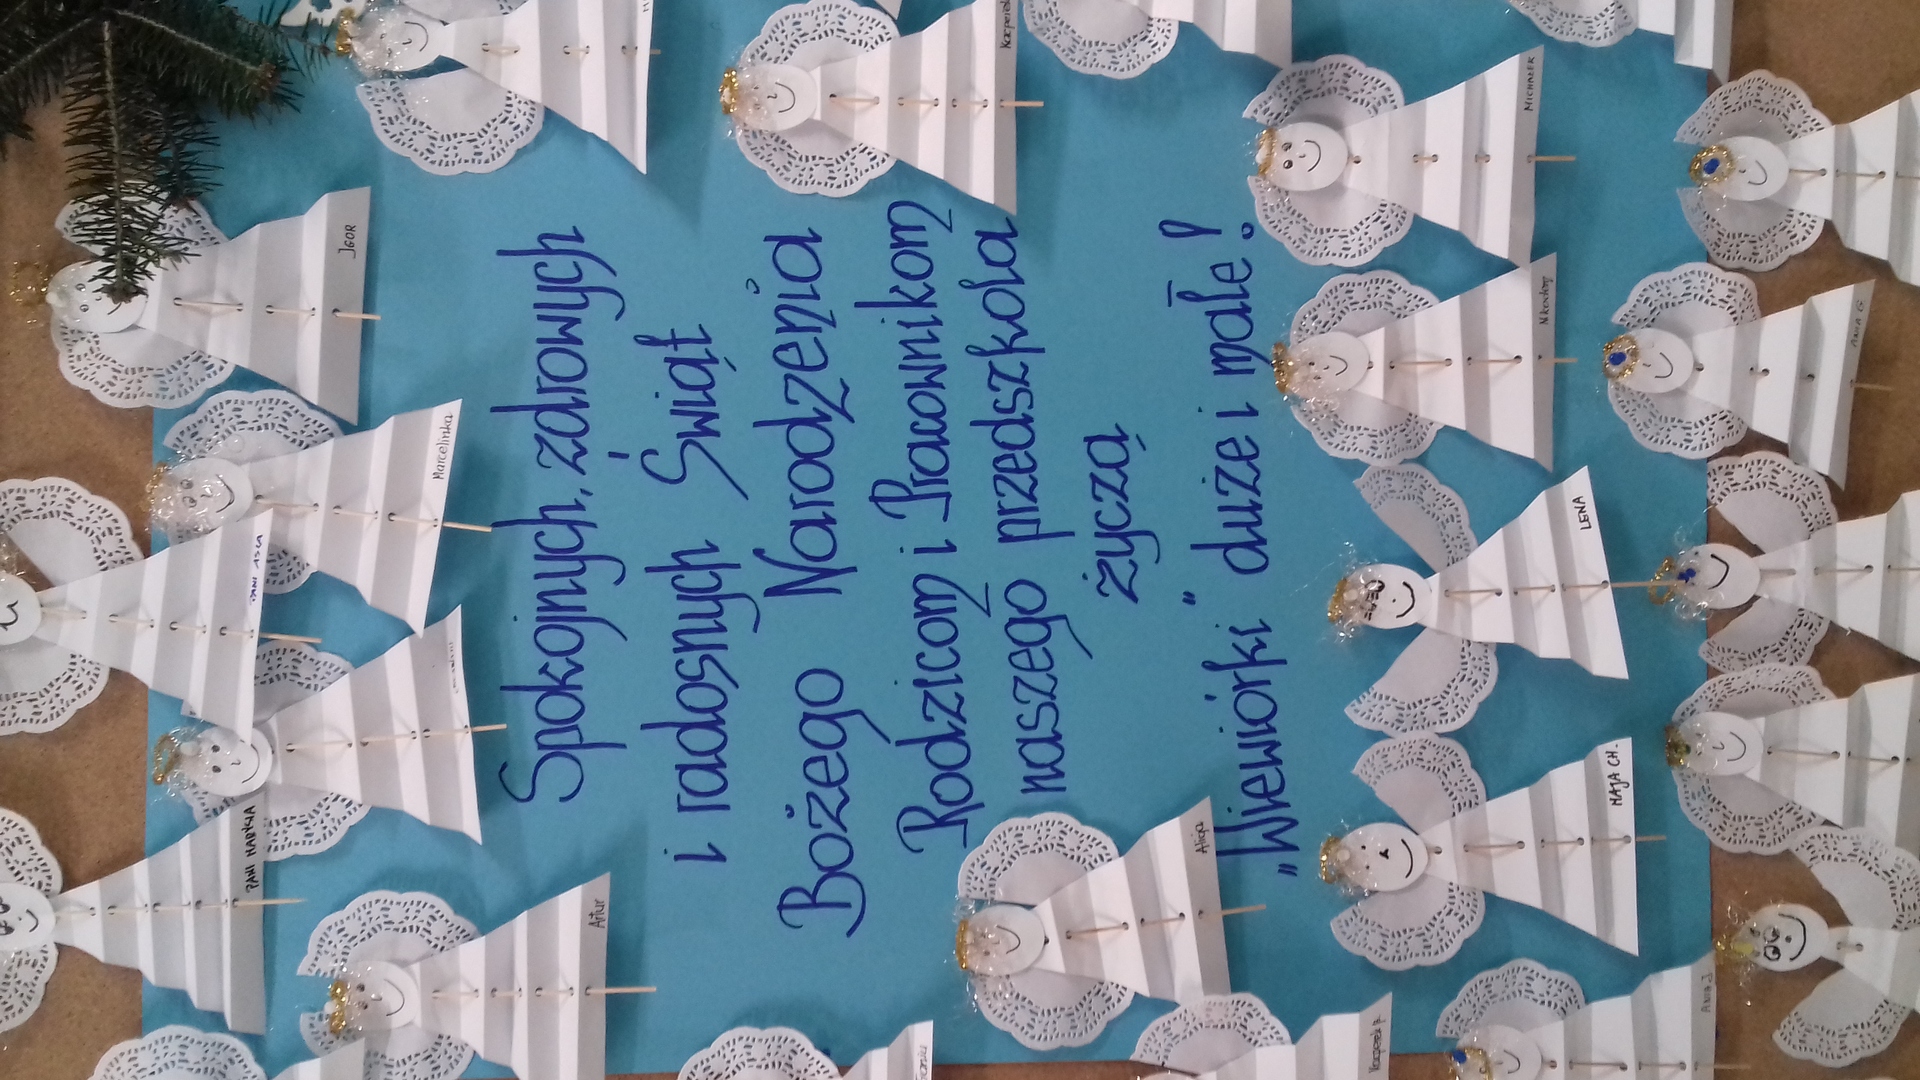 Spokojnych, zdrowych
i radosnych Świąt
Bożego Narodzenia
Rodzicom i Pracownikom
naszego przedszkola
życzą
„Wiewiórki" duże i małe!
IGOR
Marcelinka
PANI ASIA
PANI MARYSIA
Artur
Kacperek
MICHAŁEK
Nikodem
ANNA G
LENA
MAJA CH.
Alicja
Kacperek P.
ANIA J